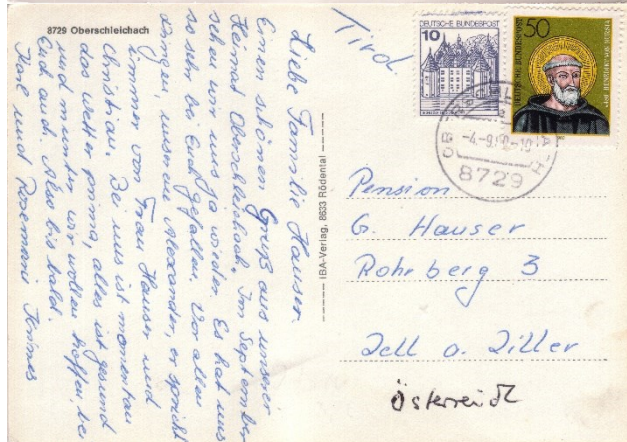 8729 Oberschleichach
Tirol.
Liebe Familie Hauser.
Einen schönen Gruß aus unserer
Heimat Oberschleichach. Im September
sehen wir uns ja wieder. Es hat uns
so sehr bei Euch gefallen. Vor allen
Dingen unserem Alexander, er spricht
immer von Frau Hauser und
Christian. Bei uns ist momentan
das Wetter prima, alles ist gesund
und munter, wir wollen hoffen bei
Euch auch. Also bis bald.
und Rosemarie
IBA-Verlag, 8633 Rödental
DEUTSCHE BUNDESPOST
10
50
DEUTSCHE BUNDESPOST
8729
Pension
G. Hauser
Rohrberg 3
Zell a. Ziller
Österreich